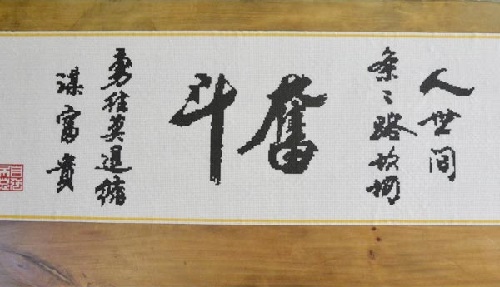 人世间
条々路坎坷
奮斗
勇往莫退缩
谋富贵